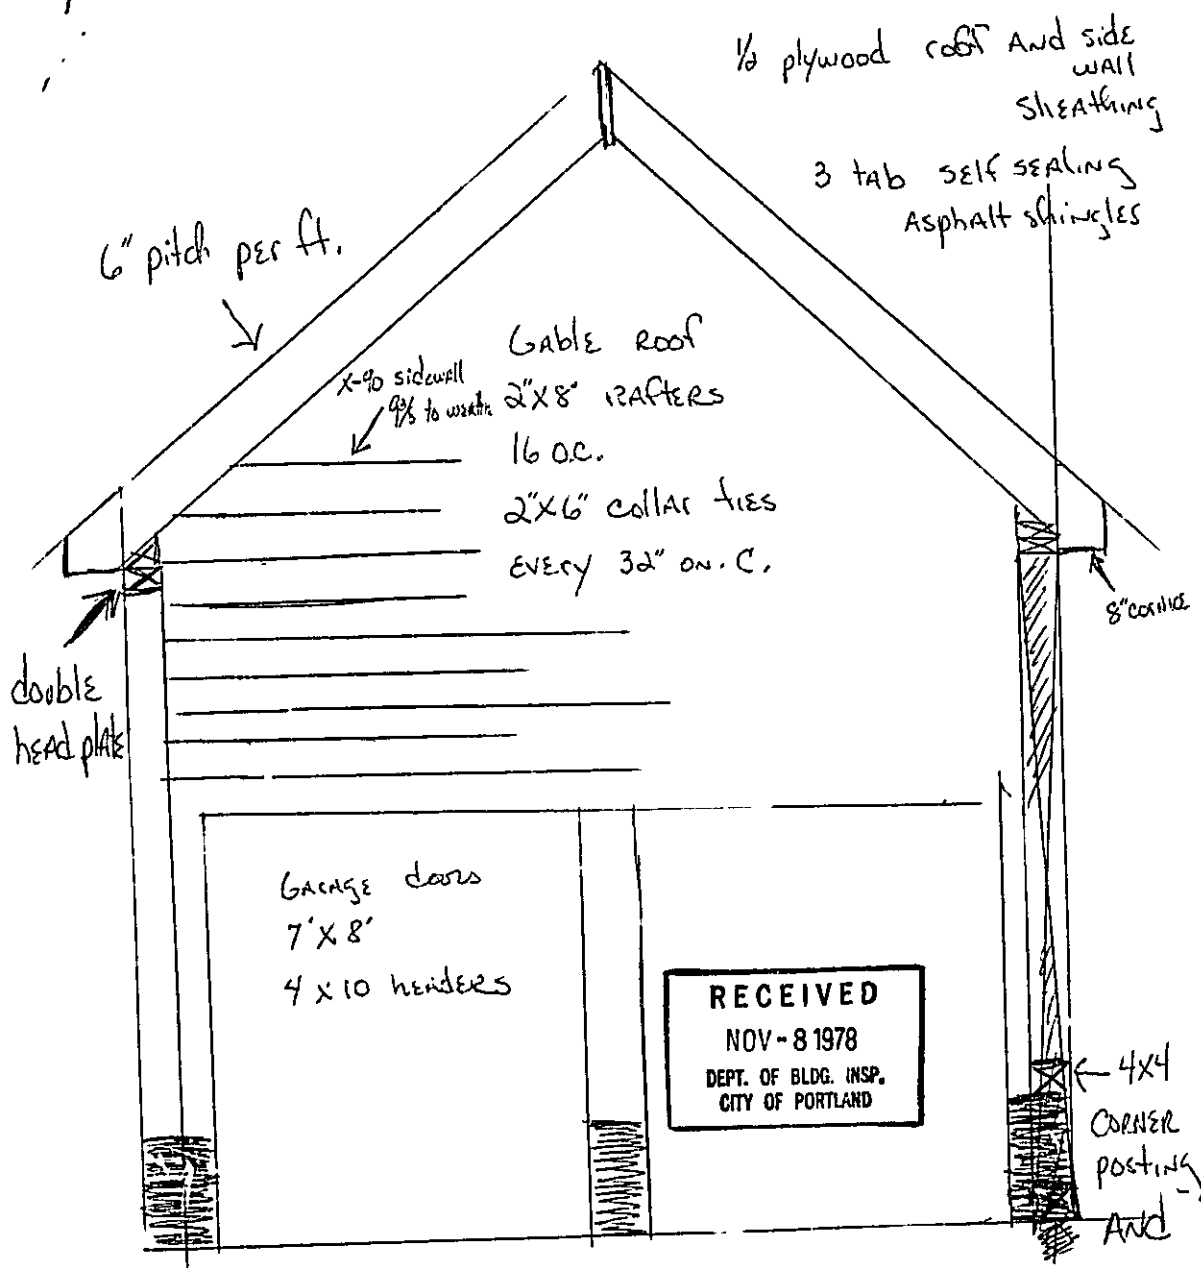 1/2 plywood roof And side
wall
sheathing
3 tab self sealing
Asphalt shingles
6" pitch per ft.
Gable Roof
X-90 sidewall
2"X8" Rafters
16 O.C.
2"X6" collar ties
Every 32" on. C.
8" cornice
double
head plate
Garage doors
7'X8'
4 X 10 headers
RECEIVED
NOV - 8 1978
DEPT. OF BLDG. INSP.
CITY OF PORTLAND
4X4
Corner
posting
And